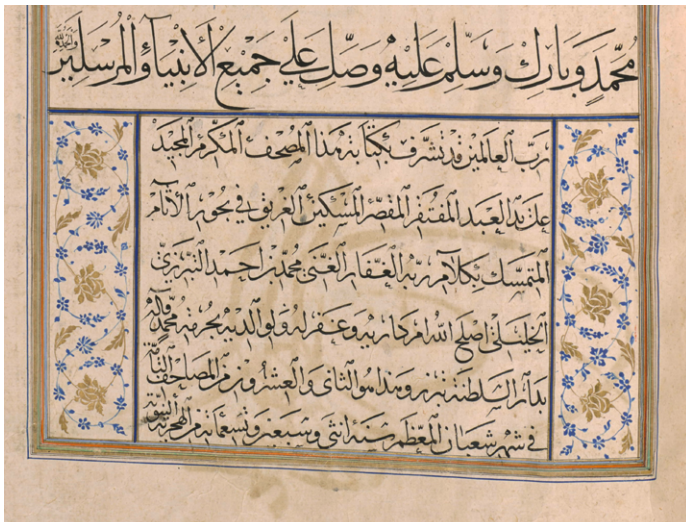 محمد وبارك وسلم عليه وصل على جميع الأنبياء والمرسلين والحمد لله
رب العالمين قد تشرف بكتابة هذا المصحف المكرم المجيد
على يد العبد المفتقر المقصر المسكين الغريق في بحور الآثام
المتمسك بكلام ربه الغفار الغني محمد بن احمد التبريزي
الخليلي اصلح الله امر داريه وغفر له ولوالديه بحرمة محمد وآله
بدار السلطنة تبريز وهذا هو الثاني والعشرون من المصاحف التامة
في شهر شعبان المعظم سنة اثنى وسبعين وتسعمائة من الهجرة النبوية